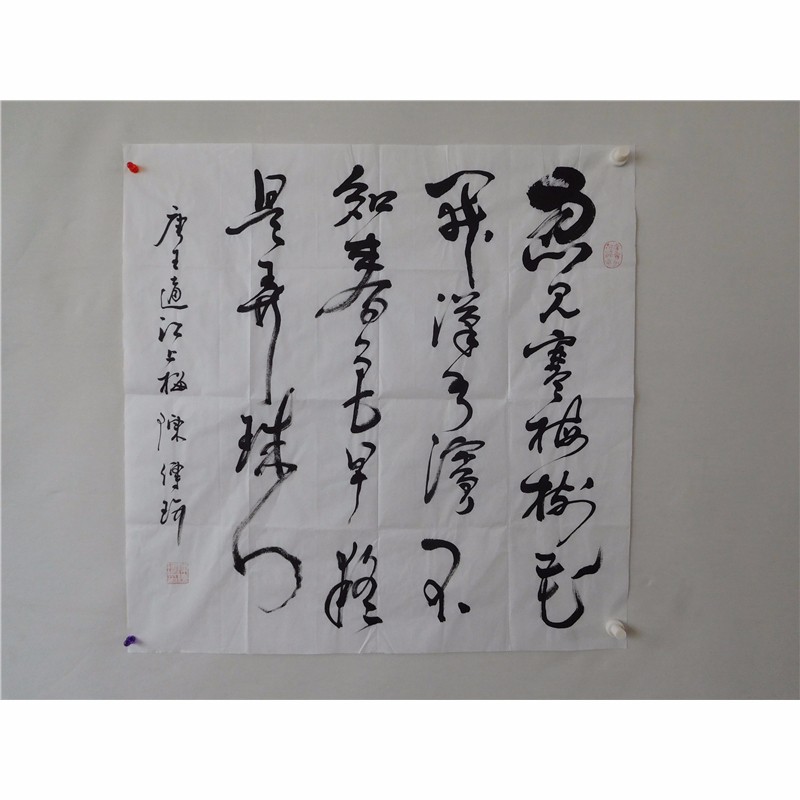 忽見寒梅樹花
開漢水濱不
知春色早疑
是弄珠人
唐王適江上梅 陳傳